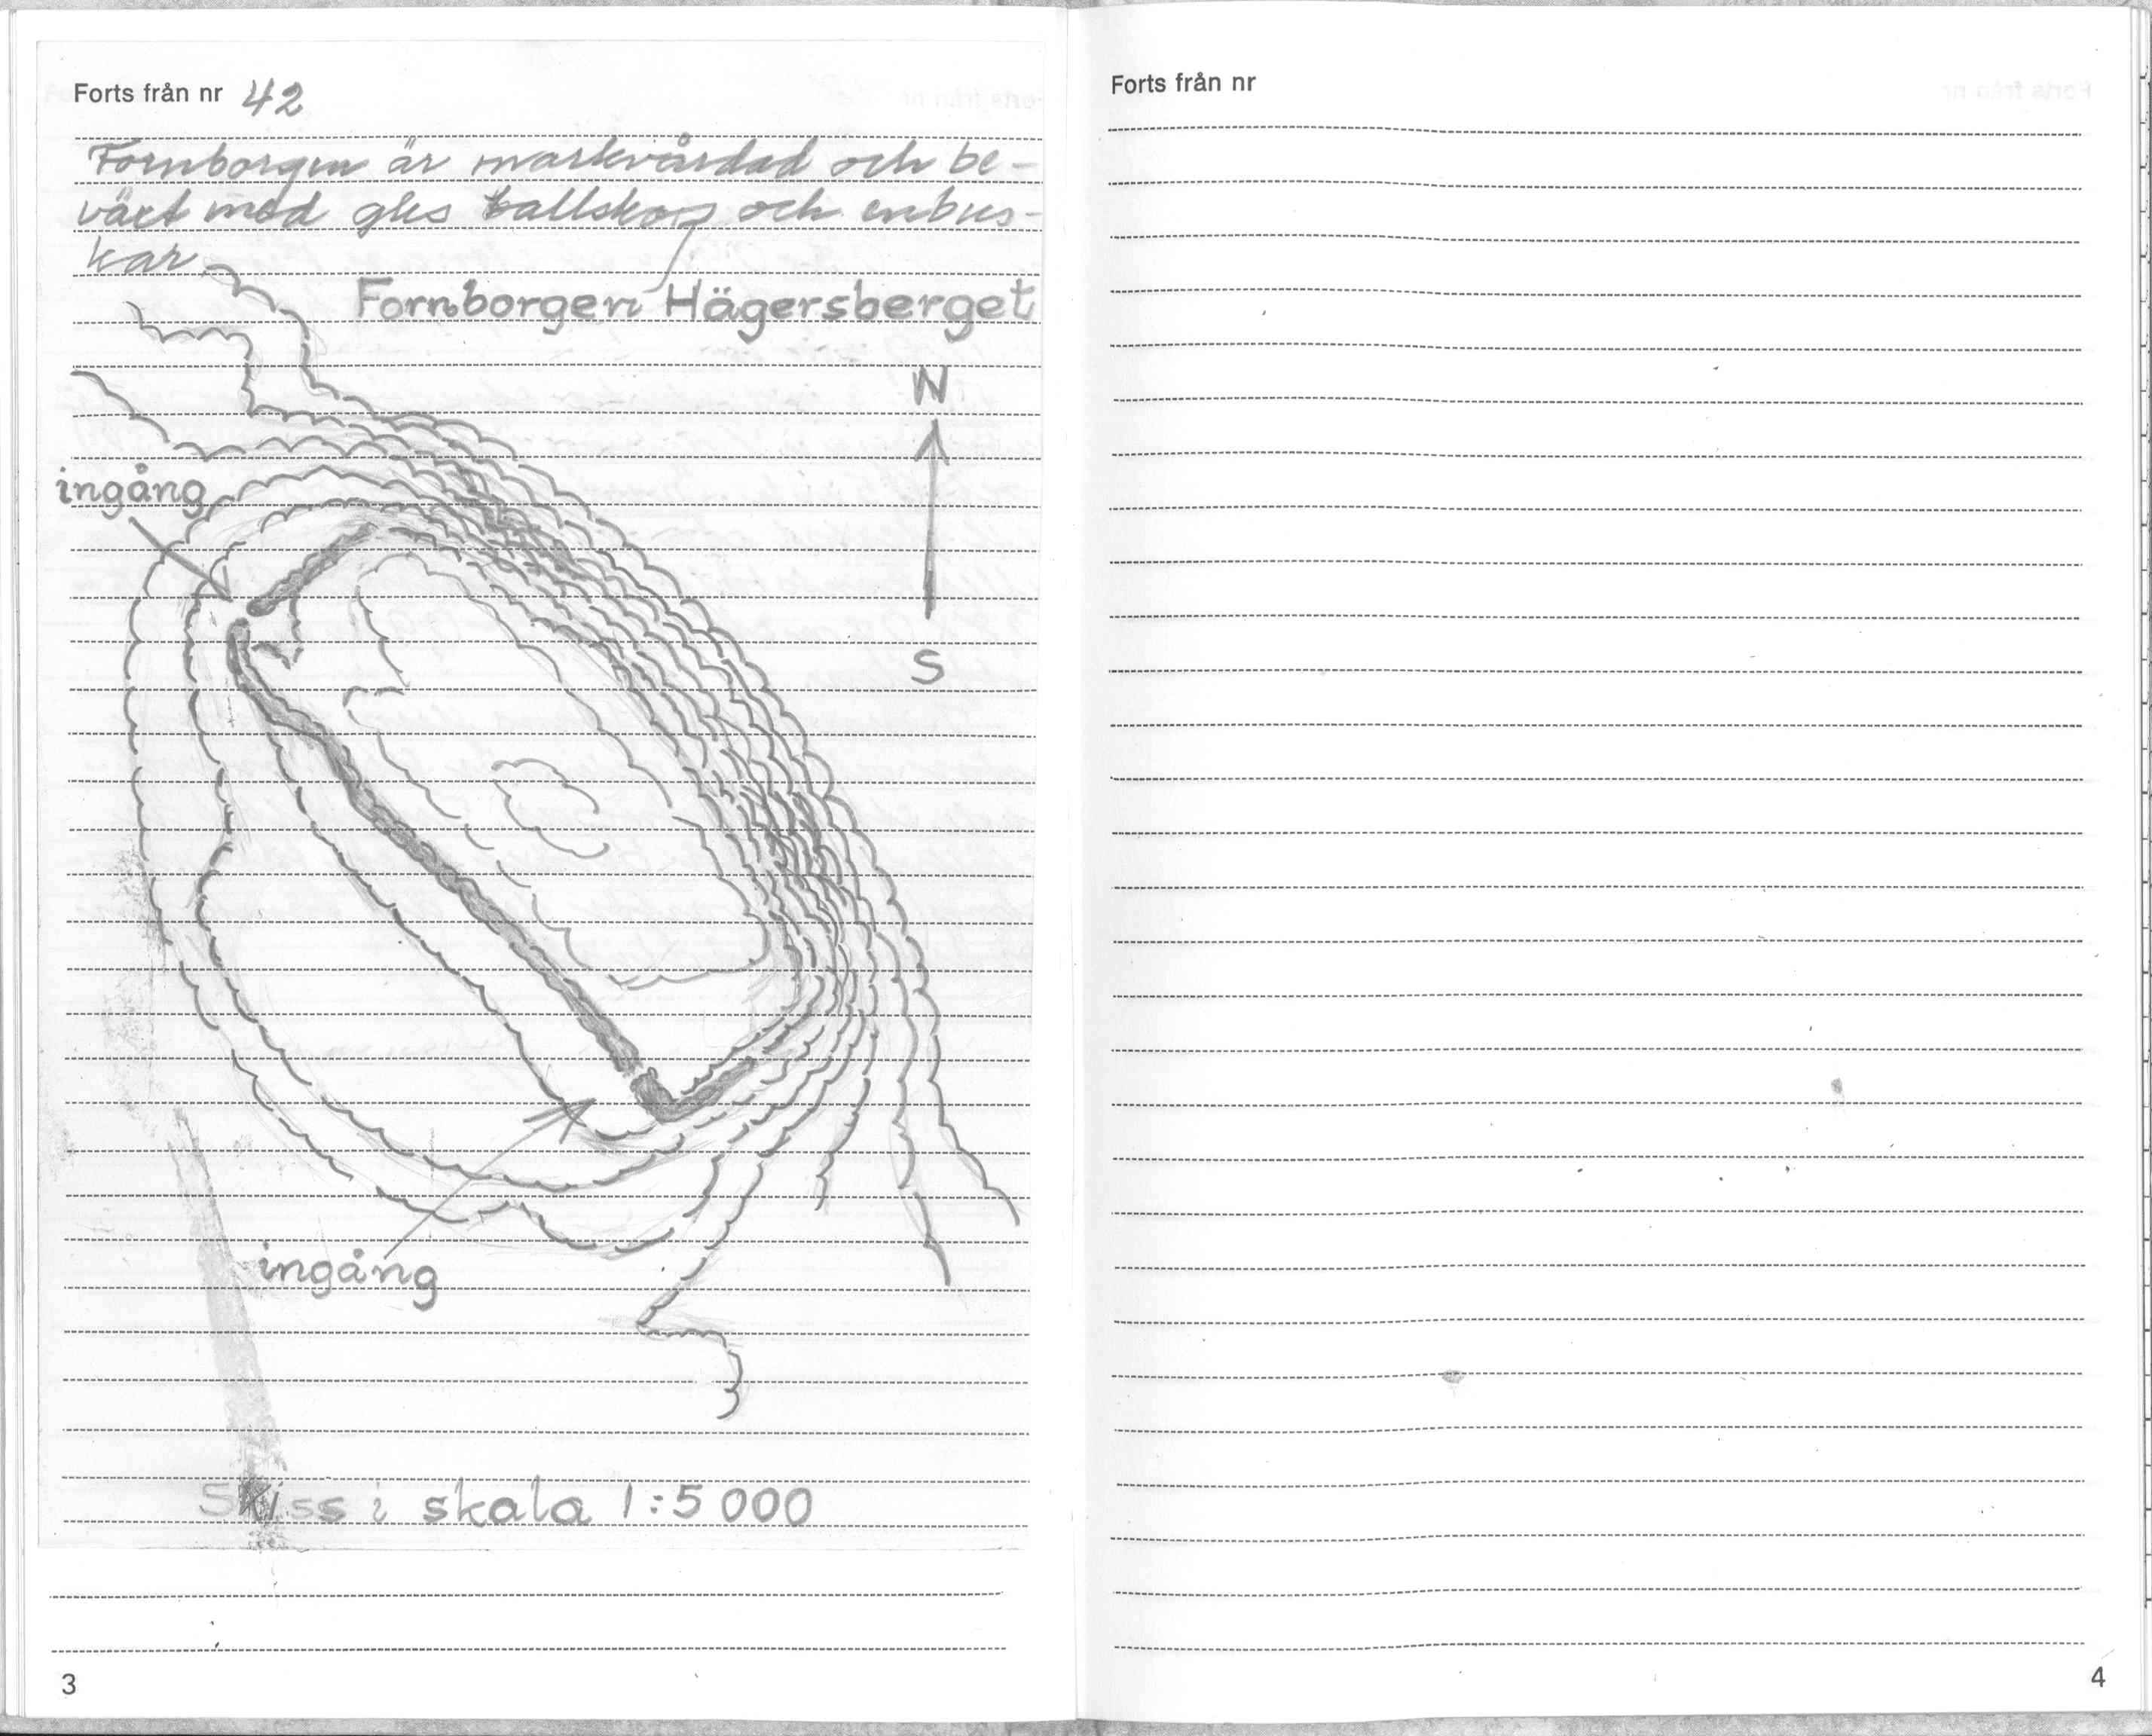 Forts från nr 42
Fornborgen är markvårdad och be-
växt med gles tallskog och enbus-
kar.
Fornborgen Hägersberget
N
ingång
S
ingång
Skiss i skala 1:5000
3
Forts från nr
4